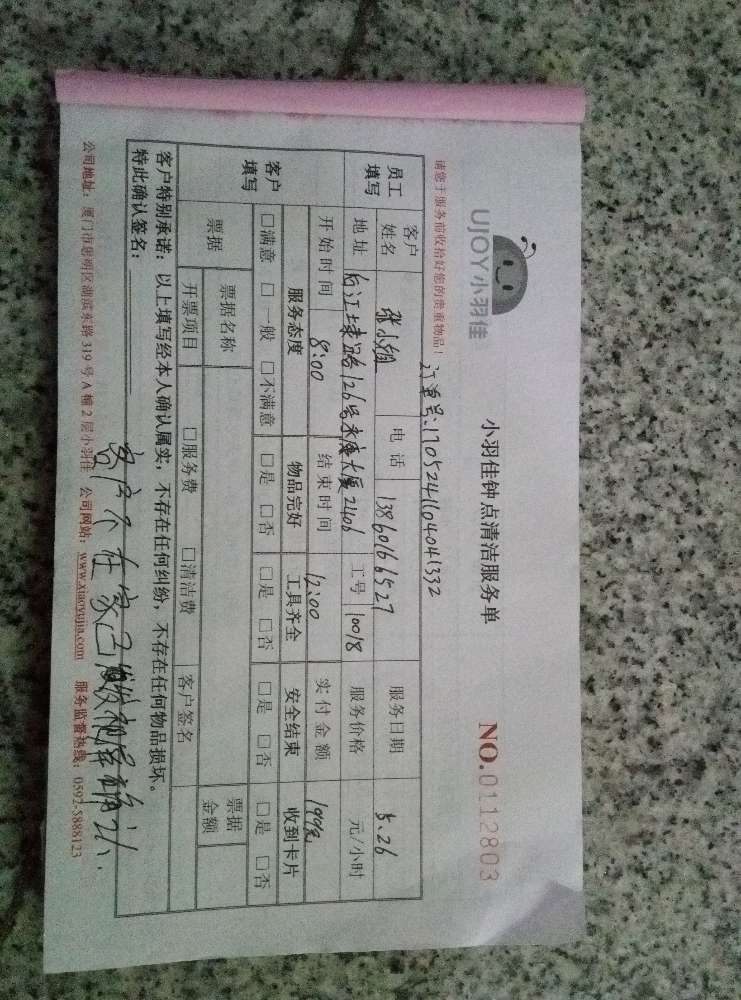 UJOY小羽佳
小羽佳钟点清洁服务单
NO.0112803
请您于服务前收拾好您的贵重物品！
订单号:1705241104041332
员工填写 客户姓名 张小姐 电话 13860166527 服务日期 5.26
地址 126号永康大厦2406 工号 10018 服务价格 元/小时
开始时间 8:00 结束时间 12:00 实付金额 199元
客户填写 服务态度 物品完好 工具齐全 安全结束 收到卡片
□满意 □一般 □不满意 □是 □否 □是 □否 □是 □否 □是 □否
票据 票据名称 票据金额
开票项目 □服务费 □清洁费 客户签名
客户特别承诺：以上填写经本人确认属实，不存在任何纠纷，不存在任何物品损坏。
特此确认签名：
客户不在家已
公司地址：厦门市思明区湖滨东路319号A幢2层小羽佳 公司网站：www.xiaoyujia.com 服务监督热线：0592-5888123